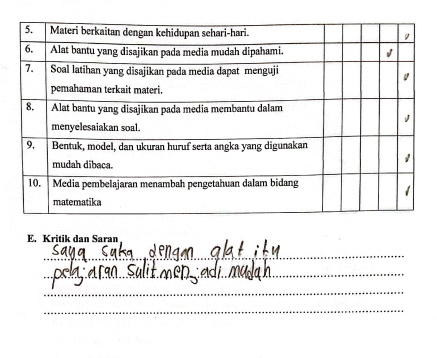 5. Materi berkaitan dengan kehidupan sehari-hari.
6. Alat bantu yang disajikan pada media mudah dipahami.
7. Soal latihan yang disajikan pada media dapat menguji
pemahaman terkait materi.
8. Alat bantu yang disajikan pada media membantu dalam
menyelesaiakan soal.
9. Bentuk, model, dan ukuran huruf serta angka yang digunakan
mudah dibaca.
10. Media pembelajaran menambah pengetahuan dalam bidang
matematika
E. Kritik dan Saran
saya suka dengan alat itu
pelajaran sulit menjadi mudah